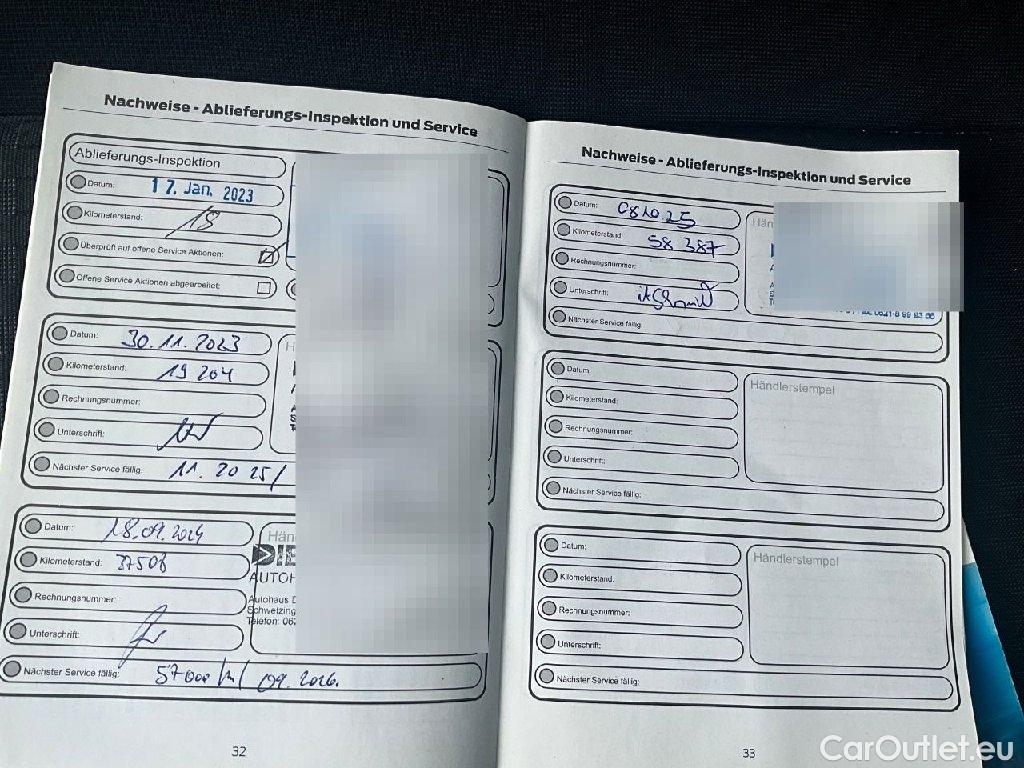 Nachweise - Ablieferungs-Inspektion und Service
Ablieferungs-Inspektion
Datum: 17. Jan. 2023
Kilometerstand: 18
Überprüft auf offene Service Aktionen:
Offene Service Aktionen abgearbeitet:
Datum: 30.11.2023
Kilometerstand: 19 204
Rechnungsnummer:
Unterschrift:
Nächster Service fällig: 11. 2025/
Datum: 18.09.2024
Kilometerstand: 37508
Rechnungsnummer:
Unterschrift:
Nächster Service fällig: 57000 km/ 09.2026.
Hän
DIE
AUTOH
Autohaus D
Schwetzing
Telefon: 062
32
Nachweise - Ablieferungs-Inspektion und Service
Datum: 081025
Kilometerstand: 58 387
Rechnungsnummer:
Unterschrift:
Nächster Service fällig:
Händ
Datum:
Kilometerstand:
Rechnungsnummer:
Unterschrift:
Nächster Service fällig:
Händlerstempel
Datum:
Kilometerstand:
Rechnungsnummer:
Unterschrift:
Nächster Service fällig:
Händlerstempel
33
CarOutlet.eu